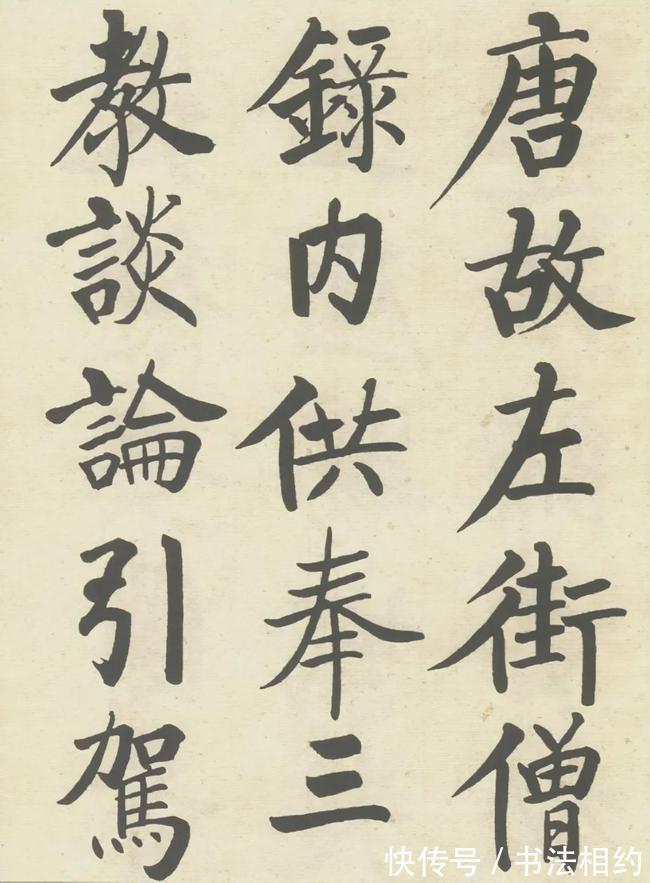 唐故左街僧
錄内供奉三
教談論引駕
快传号 / 书法相约